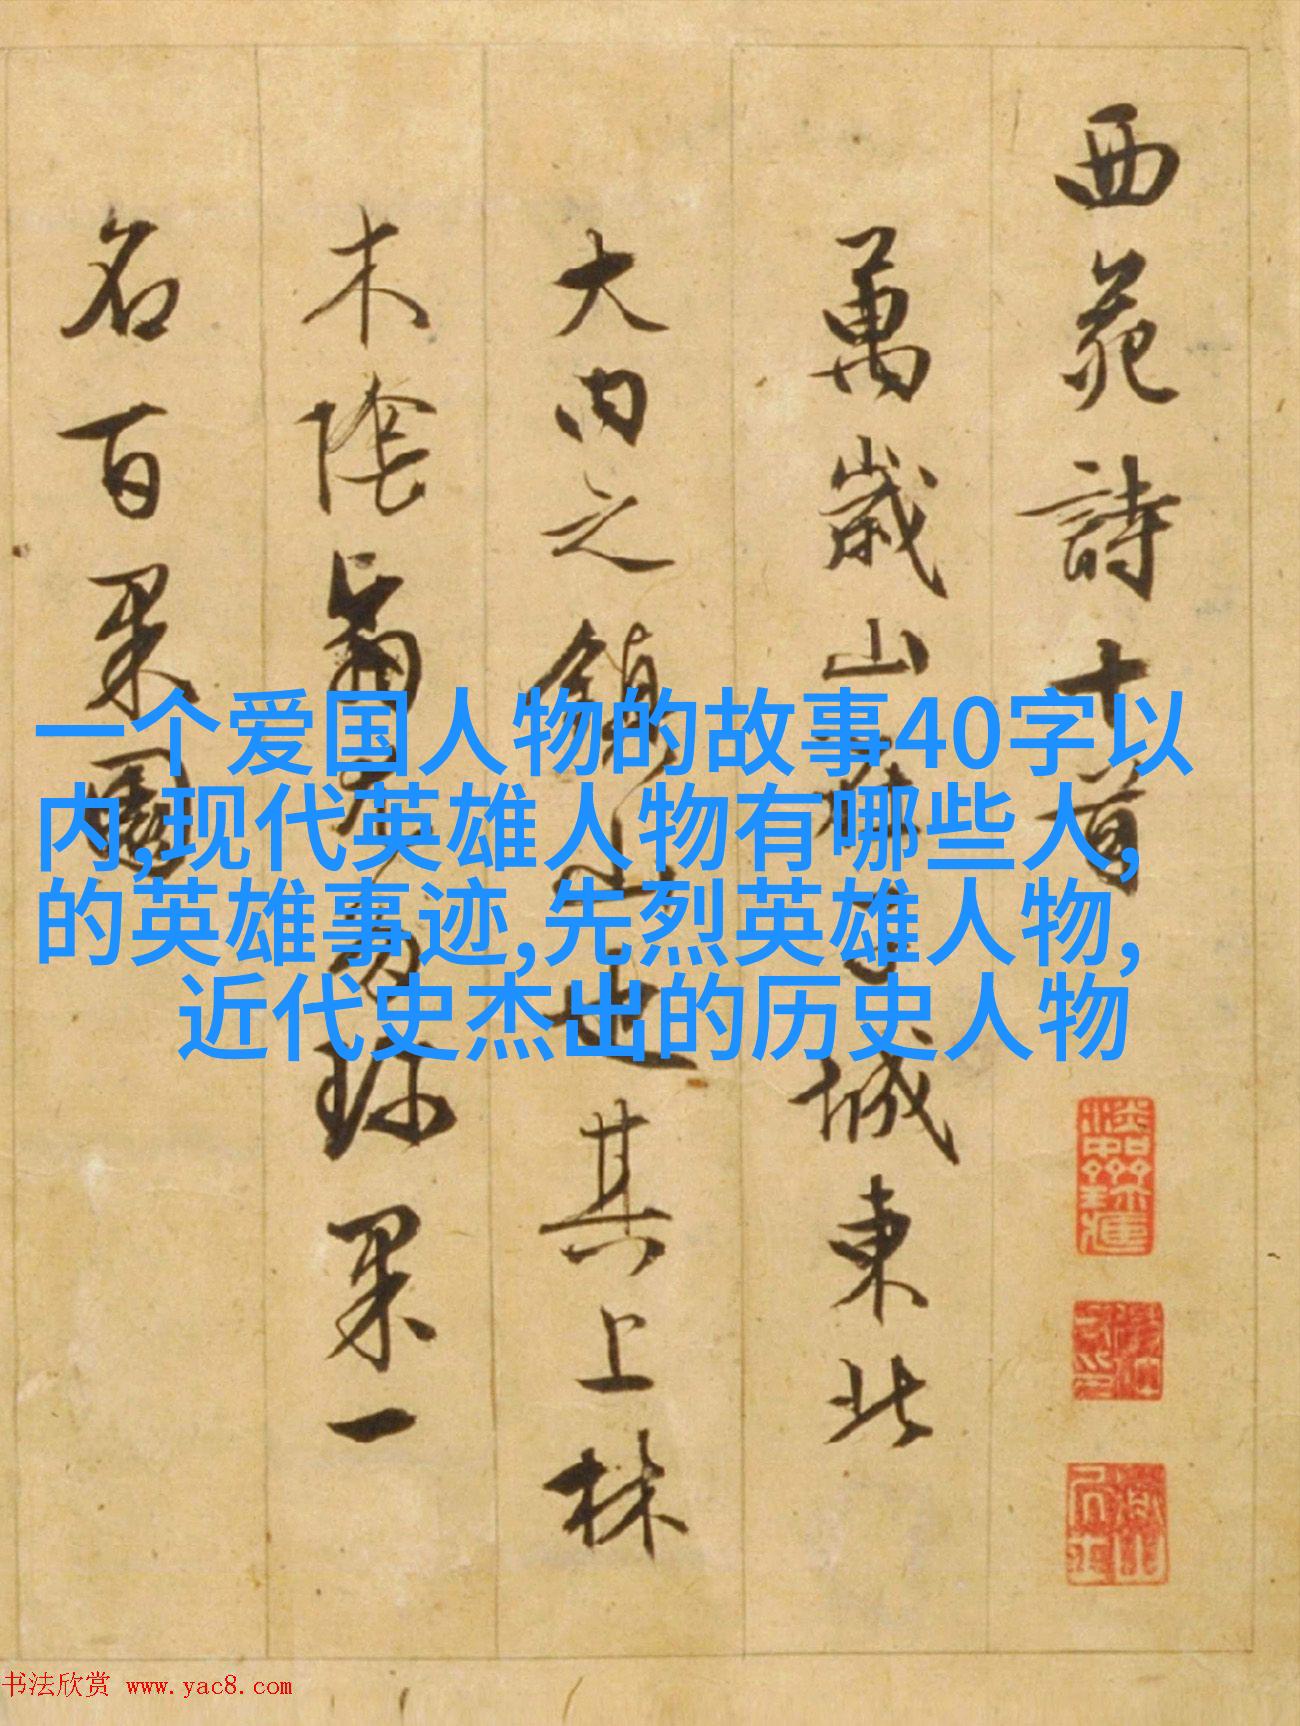 西苑詩十首
萬歲山在子城東北
大内之鎮山也其上林
木陰翳尤多珍果一
名百果園
一个爱国人物的故事40字以
内,现代英雄人物有哪些人,
的英雄事迹,先烈英雄人物,
近代史杰出的历史人物
书法欣赏 www.yac8.com